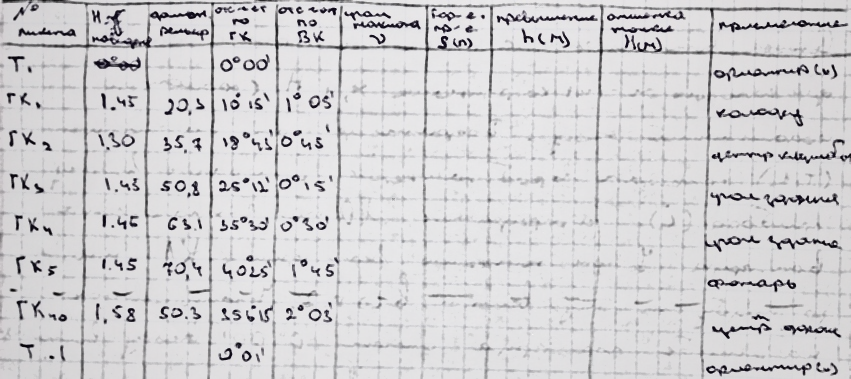 № пикета | Н.т. | дальном. рейкир | отсчет по ГК | отсчет по ВК | угол наклона ν | гор-е. пр-е. S(м) | превышение h(м) | отметка точки H(м) | примечание
Т. | 0°00' | ориентир(ы)
ГК₁ 1.45 20,3 10°15' 1°05' колодец
ГК₂ 1.30 35,7 18°43' 0°45' центр
ГК₃ 1.45 50,8 25°12' 0°15' угол здания
ГК₄ 1.45 63.1 35°30' 0°30' угол здания
ГК₅ 1.45 70,4 40°25' 1°45' фонарь
ГК₁₀ 1,58 50.3 356°15' 2°03' центр
Т.1 0°01' ориентир(ы)